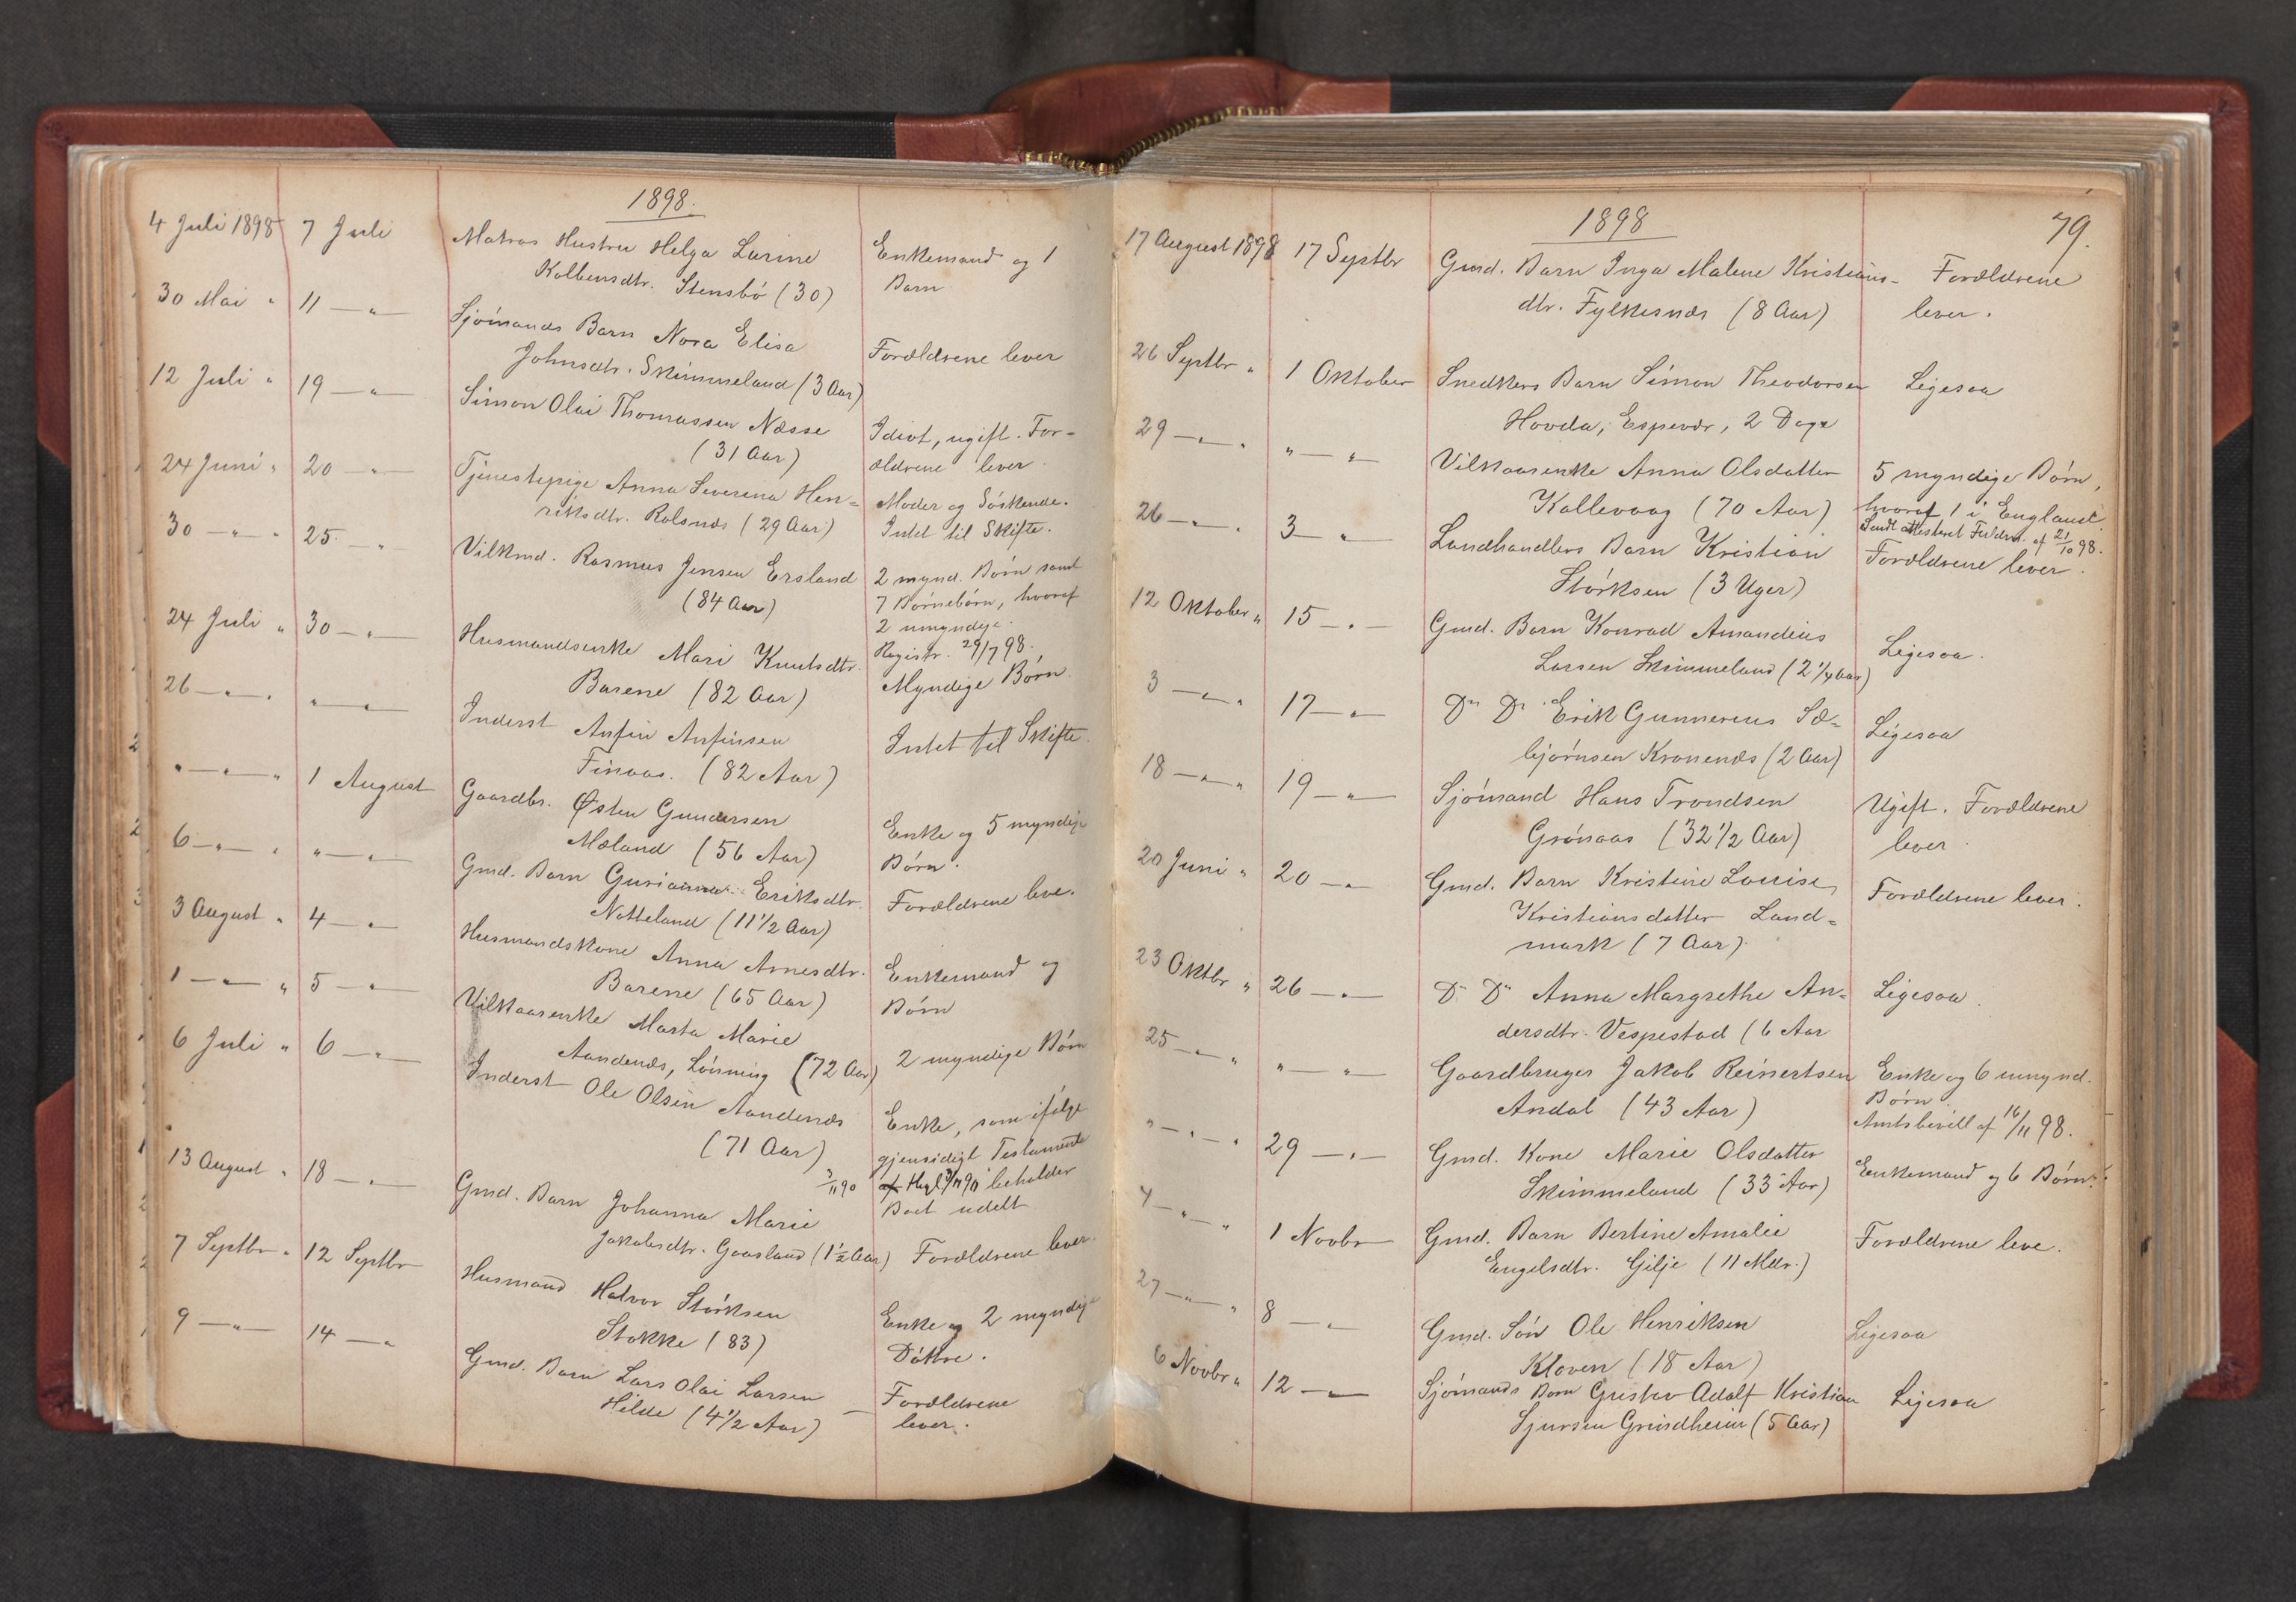 1898.
4 Juli 1898 7 Juli Matros Hustru Helga Larine Enkemand og 1
Kolbensdtr. Stensbö (30) Barn
30 Mai " 11 — " — Sjömands Barn Nora Elisa
Johnsdtr. Skimmeland (3 Aar) Forældrene lever
12 Juli " 19 — " — Simon Olai Thomassen Næsse Idiot, ugift. For-
(31 Aar) ældrene lever.
24 Juni " 20 — " — Tjenestepige Anna Severina Hen- Moder og Söskende.
riksdtr. Rolsnæs (29 Aar) Intet til Skifte.
30 — " — " 25 — " Vilkmd. Rasmus Jensen Ersland 2 mynd. Börn samt
(84 Aar) 7 Börnebörn, hvoraf
2 umyndige.
Registr. 29/7 98.
24 Juli " 30 — " — Husmandsenke Mari Knutsdtr. Myndige Börn.
Barene (82 Aar)
26 — " — " " — " — Inderst Anfin Anfinsen Intet til Skifte.
Finaas. (82 Aar)
" — " — " 1 August Gaardbr. Østen Gundersen Enke og 5 myndige
Mæland (56 Aar) Börn.
6 — " — " " — " — Gmd. Barn Gurianna Eriksdtr. Forældrene leve.
Notteland (11 1/2 Aar)
3 August " 4 — " — Husmandskone Anna Arnesdtr. Enkemand og
Barene (65 Aar) Börn
1 — " — " 5 — " — Vilkaarsenke Marta Marie
Aandenæs, Lönning (72 Aar) 2 myndige Börn
6 Juli " 6 — " — Inderst Ole Olsen Aandenæs Enke, som ifölge
(71 Aar) gjensidigt Testamente
3/11 90 af thgl. 3/11 90 beholder
Boet udelt
13 August " 18 — " — Gmd. Barn Johanna Marie
Jakobsdtr. Gaasland (1 1/2 Aar) Forældrene lever.
7 Septbr " 12 Septbr Husmand Halvor Störksen Enke og 2 myndige
Stokke (83) Döttre.
9 — " — 14 — " Gmd. Barn Lars Olai Larsen — Forældrene
Hilde (4 1/2 Aar) lever.
1898 79.
17 August 1898 17 Septbr Gmd. Barn Inga Malene Kristians- Forældrene
dtr. Fylkesnæs (8 Aar) lever.
26 Septbr " 1 Oktober Snedkers Barn Simon Theodorsen Ligesaa
Hovda, Espevær, 2 Dage
29 — " — " " — " Vilkaarsenke Anna Olsdatter 5 myndige Börn,
Kallevaag (70 Aar) hvoraf 1 i England.
Sendt attesteret Fuldm. af 21/10 98.
26 — " — " 3 — " Landhandlers Barn Kristian Forældrene lever.
Störksen (3 Uger)
12 Oktober " 15 — " — Gmd. Barn Konrad Amandius Ligesaa.
Larsen Skimmeland (2 1/4 Aar)
3 — " — " 17 — " — Do Do Erik Gunnerius Sæ- Ligesaa
björnsen Kronenæs (2 Aar)
18 — " — " 19 — " — Sjömand Hans Trondsen Ugift. Forældrene
Grönaas (32 1/2 Aar) lever.
20 Juni " 20 — " — Gmd. Barn Kristine Louise Forældrene lever.
Kristiansdatter Land-
mark (7 Aar).
23 Oktbr " 26 — " — Do Do Anna Margrethe An- Ligesaa.
dersdtr. Vespestad (6 Aar
25 — " — " " — " Gaardbruger Jakob Reinertsen Enke og 6 umynd.
Andal (43 Aar) Börn
Amtsbevill af 16/11 98.
" — " — " 29 — " — Gmd. Kone Marie Olsdatter Enkemand og 6 Börn.
Skimmeland (33 Aar)
4 — " — " 1 Novbr Gmd. Barn Bertine Amalie Forældrene leve.
Engelsdtr. Gilje (11 Mdr.)
27 — " — " 8 — " — Gmd. Sön Ole Henriksen Ligesaa
Kloven (18 Aar)
6 Novbr " 12 — " — Sjömands Barn Gustav Adolf Kristian Ligesaa
Sjursen Grindheim (5 Aar)